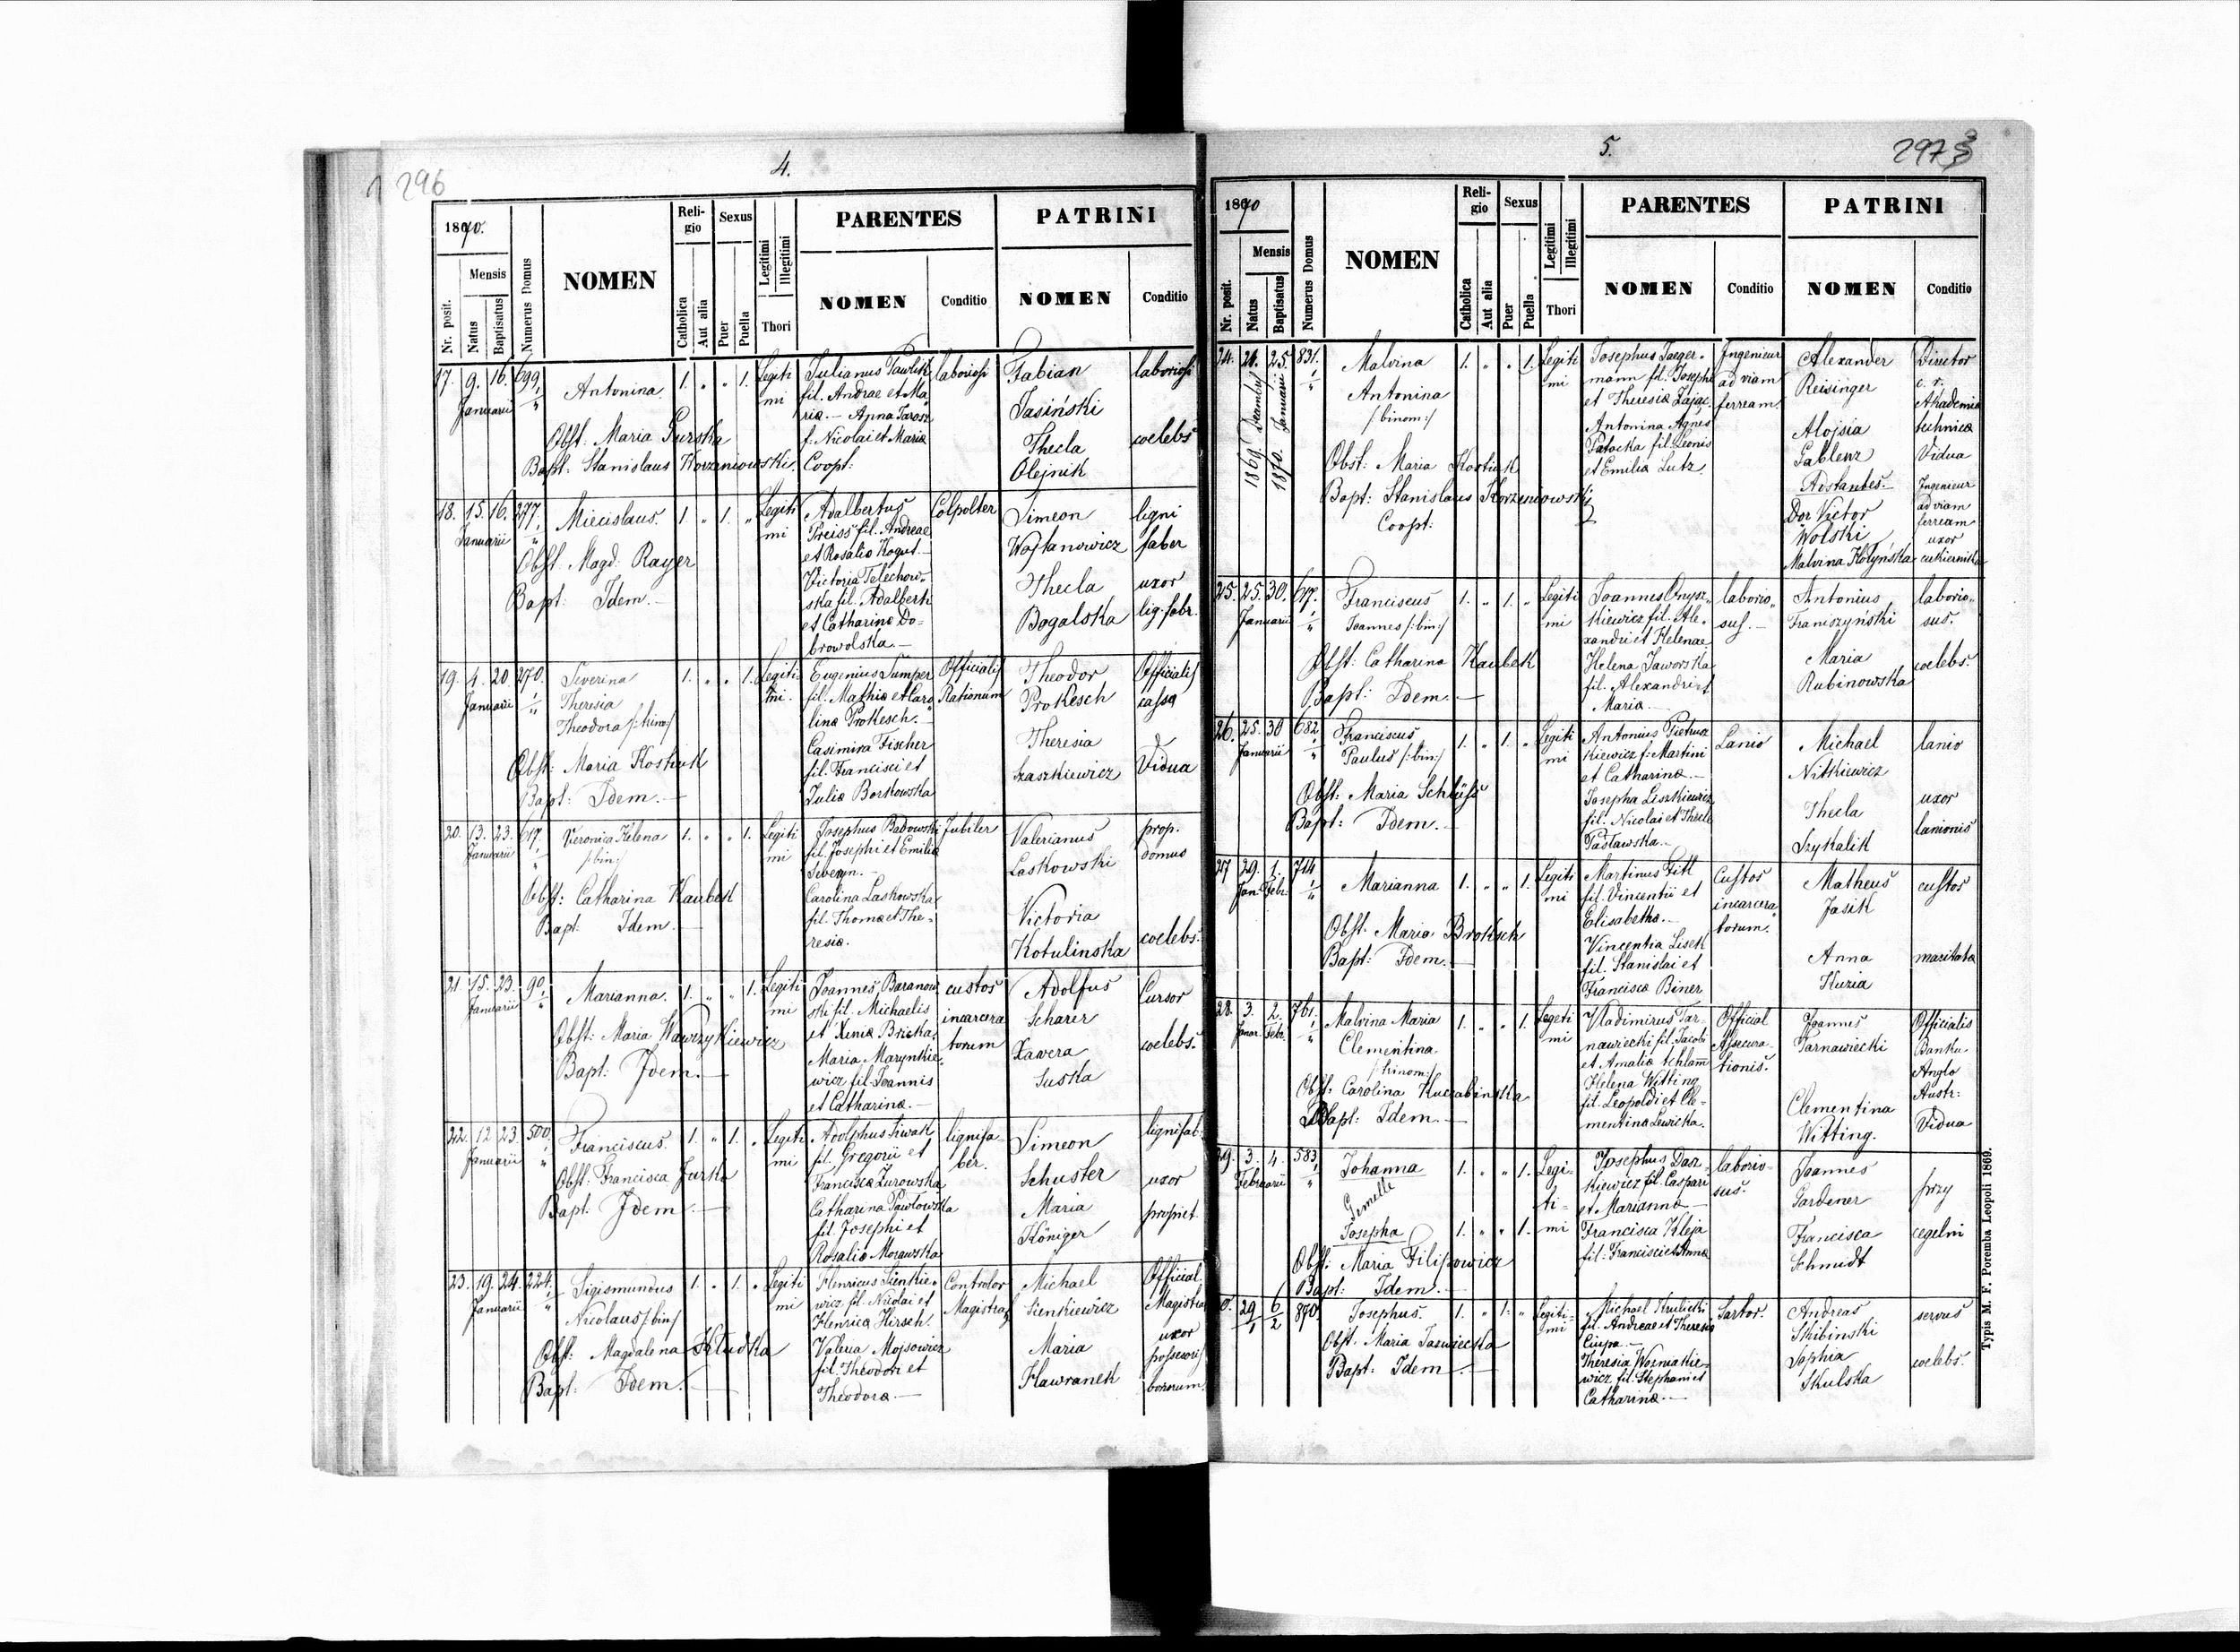 296
4.
1870.
Nr. posit.
Mensis
Natus
Baptisatus
Numerus Domus
NOMEN
Religio
Catholica
Aut alia
Sexus
Puer
Puella
Legitimi
Illegitimi
Thori
PARENTES
NOMEN
Conditio
PATRINI
NOMEN
Conditio
17. 9. 16. 699
Januarii
Antonina
1. " " 1.
Legiti
mi
Obst: Maria Gurska
Bapt: Stanislaus Korzeniowski. Coopt:
Julianus Pawlik
fil. Andrae et Ma
riæ. — Anna Tarosz
f. Nicolai et Mariæ
laboriosi
Fabian
Jasiński
Thecla
Olejnik
laboriosi
coelebs
18. 15. 16. 277.
Januarii
Miecislaus.
1 " 1. "
Legiti
mi
Obst. Magd. Rayer
Bapt: Idem. —
Adalbertus
Preiss fil. Andreae
et Rosaliæ Kogut. —
Victoria Telechow-
ska fil. Adalberti
et Catharinæ Do-
browolska. —
Colpolter
Simeon
Wojtanowicz
Thecla
Bogalska
ligni
faber
uxor
lig. fabr.
19. 4. 20. 270.
Januarii
Severina
Theresia
Theodora
1. " " 1.
Legiti
mi.
Obst: Maria Kostiuk
Bapt: Idem. —
Eugenius Sumper
fil. Mathiæ et Caro
linæ Prokesch. —
Casimira Fischer
fil. Francisci et
Juliæ Borkowska
Officialis
Rationum
Theodor
Prokesch
Theresia
Szaszkiewicz
Officialis
cassæ
Vidua
20. 13. 23. 617.
Januarii
Veronica Helena
/:bin:/
1. " " 1.
Legiti
mi
Obst: Catharina Kaubek
Bapt: Idem. —
Josephus Badowski
fil. Josephi et Emiliæ
Seweryn. —
Carolina Laskowska
fil. Thomæ et The-
resiæ.
Jubiler
Valerianus
Laskowski
Victoria
Kotulinska
prop.
domus
coelebs.
21. 15. 23. 90.
Januarii
Marianna.
1. " " 1.
Legiti
mi
Obst: Maria Wawrzykiewicz
Bapt: Idem. —
Joannes Baranow
ski fil. Michaelis
et Xeniæ Bricka.
Maria Marynkie-
wicz fil. Joannis
et Catharinæ. —
custos
incarcera
torum
Adolfus
Scharer
Xavera
Suska
Cursor
coelebs.
22. 12. 23. 500.
Januarii
Franciscus.
1. " 1. "
Legiti
mi
Obst: Francisca Jurko
Bapt: Idem —
Adolphus Siwak
fil. Gregorii et
Franciscæ Zurowska
Catharina Pawłowska
fil. Josephi et
Rosaliæ Morawska
lignifa-
ber.
Simeon
Schuster
Maria
Königer
lignifab.
uxor
propriet.
23. 19. 24. 224.
Januarii
Sigismundus
Nicolaus /:bin/
1. " 1. "
Legiti
mi
Obst: Magdalena Sztudka
Bapt: Idem. —
Henricus Sienkie-
wicz fil. Nicolai et
Henricæ Hirsch.
Valeria Mojsowicz
fil. Theodori et
Theodoræ —
Controlor
Magistrat
Michael
Sienkiewicz
Maria
Hawranek
Official.
Magistrat
uxor
possessoris
bonorum
5.
297
1870
Nr. posit.
Mensis
Natus
Baptisatus
Numerus Domus
NOMEN
Religio
Catholica
Aut alia
Sexus
Puer
Puella
Legitimi
Illegitimi
Thori
PARENTES
NOMEN
Conditio
PATRINI
NOMEN
Conditio
24. 24. 25. 831.
1869. Decembris
1870. Januarii
Malvina
Antonina
/:binom:/
1. " " 1.
Legiti
mi
Obst: Maria Kostiuk
Bapt: Stanislaus Korzeniowski
Coopt:
Josephus Jaeger-
mann fil. Josephi
et Theresiæ Zając.
Antonina Agnes
Patocka fil. Leonis
et Emiliæ Lutz.
Ingenieur
ad viam
ferream
Alexander
Reisinger
Alojsia
Gablenz
Adstantes
Dor Victor
Wolski
Malvina Hołyńska
Director
c. r.
Akademiæ
technicæ
Vidua
Ingenieur
ad viam
ferream
uxor
cukiernika
25. 25. 30. 617.
Januarii
Franciscus
Joannes /:bin:/
1. " 1. "
Legiti
mi
Obst: Catharina Kaubek
Bapt: Idem. —
Joannes Onysz-
kiewicz fil. Ale-
xandri et Helenae
Helena Jaworska
fil. Alexandri et
Mariæ
laborio-
sus. —
Antonius
Franiszyński
Maria
Rubinowska
laborio-
sus.
coelebs.
26. 25. 30 682
Januarii
Franciscus
Paulus /:bin:/
1. " 1. "
Legiti
mi
Obst: Maria Schlüss
Bapt: Idem. —
Antonius Pietrusz
kiewicz f: Martini
et Catharinæ. —
Josepha Liszkiewicz
fil. Nicolai et Theclæ
Pasławska. —
Lanio
Michael
Nitkiewicz
Thecla
Szykalik
lanio
uxor
lanionis
27 29. 1. 714
Jan. Febr.
Marianna
1. " " 1.
Legiti
mi
Obst. Maria Broksch
Bapt: Idem. —
Martinus Fith
fil. Vincentii et
Elisabethæ. —
Vincentia Lisek
fil. Stanislai et
Franciscæ Biner
Custos
incarcera
torum.
Matheus
Jasik
Anna
Kuzia
custos
maritata
28. 3. 2. 761.
Januar. Febr.
Malvina Maria
Clementina
/:trinom:/
1. " " 1.
Legeti
mi
Obst: Carolina Kuczabinska
Bapt: Idem. —
Vladimirus Tar-
nawiecki fil. Jacobi
et Amaliæ Schlam
Helena Witting
fil. Leopoldi et Cle-
mentinæ Lewicka.
Official
Assecura-
tionis.
Joannes
Tarnawiecki
Clementina
Witting.
Officialis
Banku
Anglo
Austr:
Vidua
29. 3. 4. 583
Februarii
Johanna
Gemelle
Josepha
1. " " 1.
1. " " 1.
Legi-
ti-
mi
Obst: Maria Filipowicz
Bapt: Idem. —
Josephus Dasz-
kiewicz fil. Caspari
et Mariannæ —
Francisca Kleja
fil. Francisci et Annæ
laborio-
sus.
Joannes
Gardener
Francisca
Schmidt
przy
cegelni
29/1 6/2 870.
Josephus.
1. " 1. "
Legiti-
mi
Obst. Maria Jaswiecka
Bapt: Idem —
Michael Krulicki
fil. Andreae et Theresiæ
Ciupa. —
Theresia Wozniakie-
wicz fil. Stephani et
Catharinæ. —
Sartor.
Andreas
Skibinski
Sophia
Skulska
servus
coelebs.
Typis M. F. Poremba Leopoli 1869.